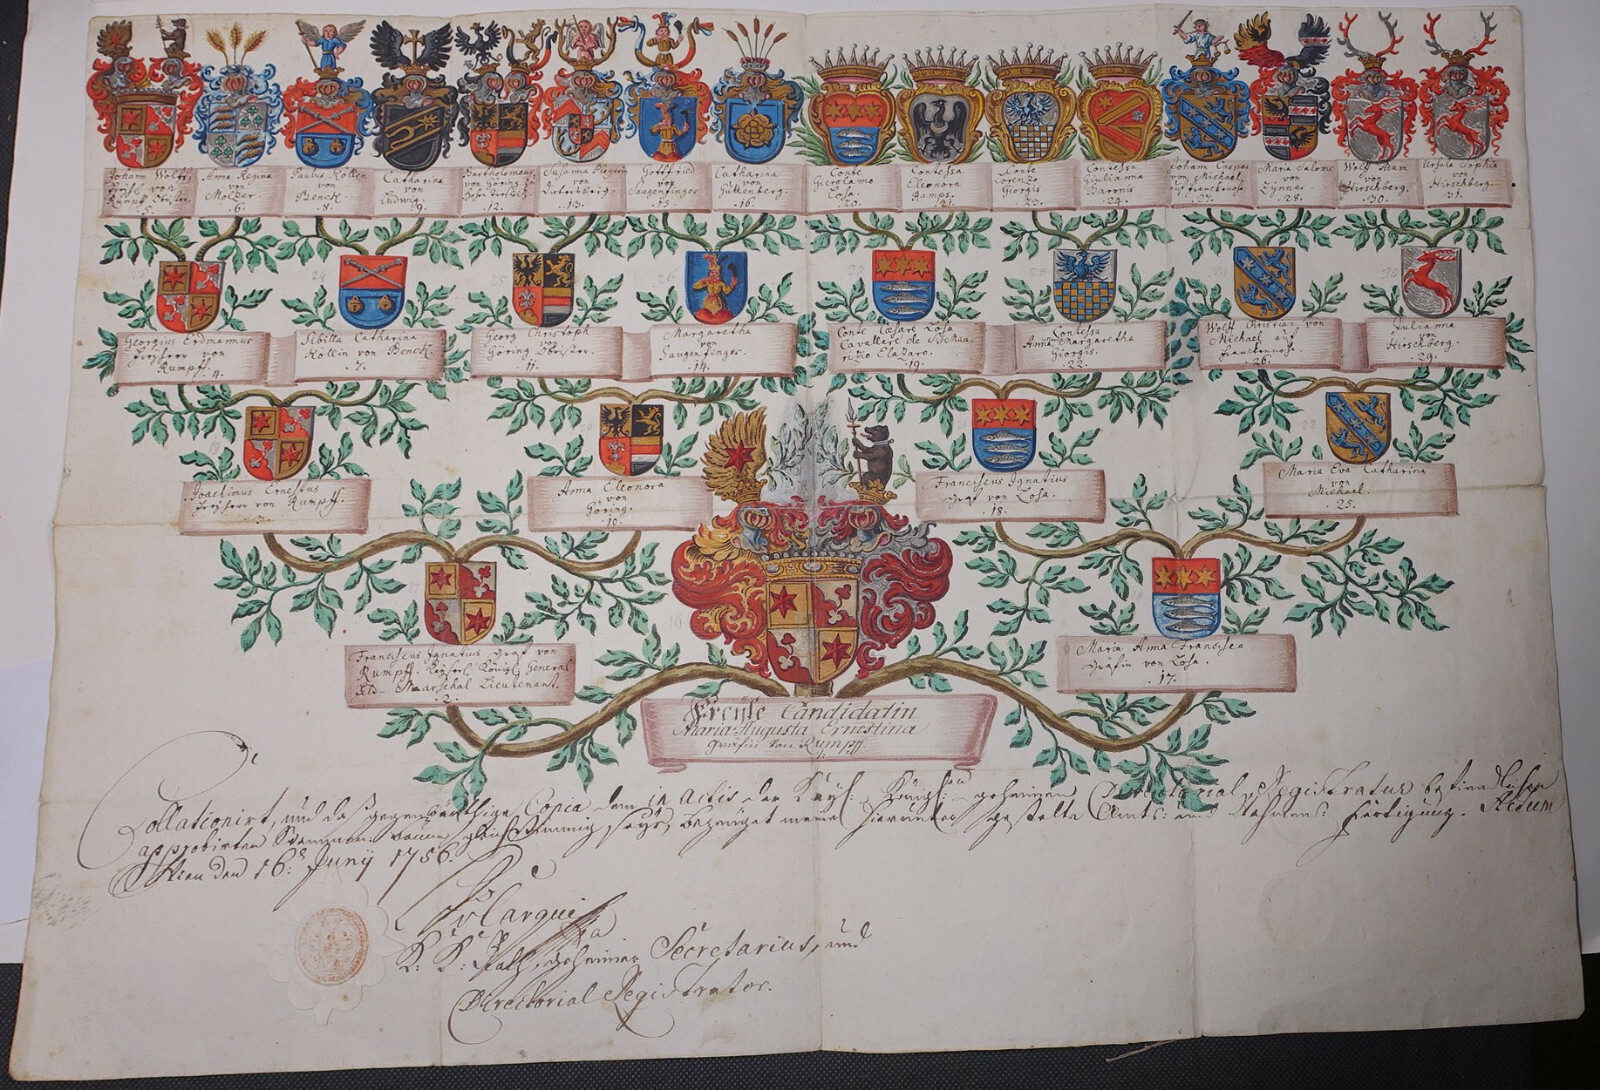 Johann Wolff
von
Rumpff Obrister
5.
Anna Regina
von
6.
Paulus Köllen
von
Benck
8.
Catharina
von
Ludwig
9.
Bartholomeus
von Göring
12.
Susanna
von
13.
Gottfried
von
Saugenfinger
15.
Catharina
von
Güttenberg
16.
Conte
Gierolamo
Zosa
20.
Contessa
Eleonora
21.
Conte
Lorenzo
Giorgis
23.
Contessa
Giulianna
Baronis
24.
Johann Caspar
von Michael
27.
Maria Salome
von
28.
Wolff Adam
von
Hirschberg
30.
Ursula Sophia
von
Hirschberg
31.
Georgius Erdmannus
Freyherr von
Rumpff. 4.
Sibilla Catharina
Köllin von Benck.
7.
Georg Christoph
von
Göring Obrister.
11.
Margaretha
von
Saugenfinger.
14.
Conte Cæsare Zosa
Cavallere de
19.
Contessa
Anna Margaretha
Giorgis.
22.
Wolff Christian von
Michael auf
26.
Julianna
von
Hirschberg.
29.
Joachimus Ernestus
Freyherr von Rumpff.
3.
Anna Eleonora
von
Göring.
10.
Franciscus Ignatius
Graf von Zosa.
18.
Maria Eva Catharina
von
Michael.
25.
Franciscus Ignatius Graf von
Rumpff. Keyserl. Königl. General
Feld-Marschal Lieutenant.
2.
Maria Anna Francisca
Gräfin von Zosa.
17.
Freyle Candidatin
Maria Augusta Ernestina
Gräfin von Rumpff.
Collationirt, und daß gegenwärthige Copia dem in Actis der Kayl: Königl: geheimen Directorial Registratur befindlichen
approbirten Stammbaum gleichstimmig seye, bezeuget meine hierunter gestelte Amts: und Nahmens: Fertigung. Actum
Wien den 16. Junij 1756.
K: K: Rath, geheimer Secretarius, und
Directorial Registrator.